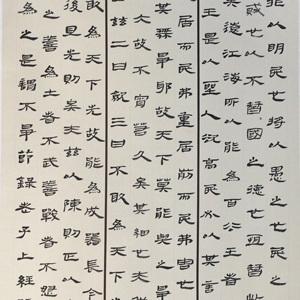 非以明民也將以愚之也民之
賊也以不智國之德也恒智
江海所以能為百浴王者
王是以聖人欲高民必以其言
居而民弗重居前而民弗害也
其爭邪故天下莫能與之爭
大故不宵若久矣其細也夫
曰茲二曰三曰不敢為天下
敢為天下先故能為成器長今
後且先則矣夫茲以陳則正以
善為士者不武善戰者不怒
為之是謂不爭節錄老子上經